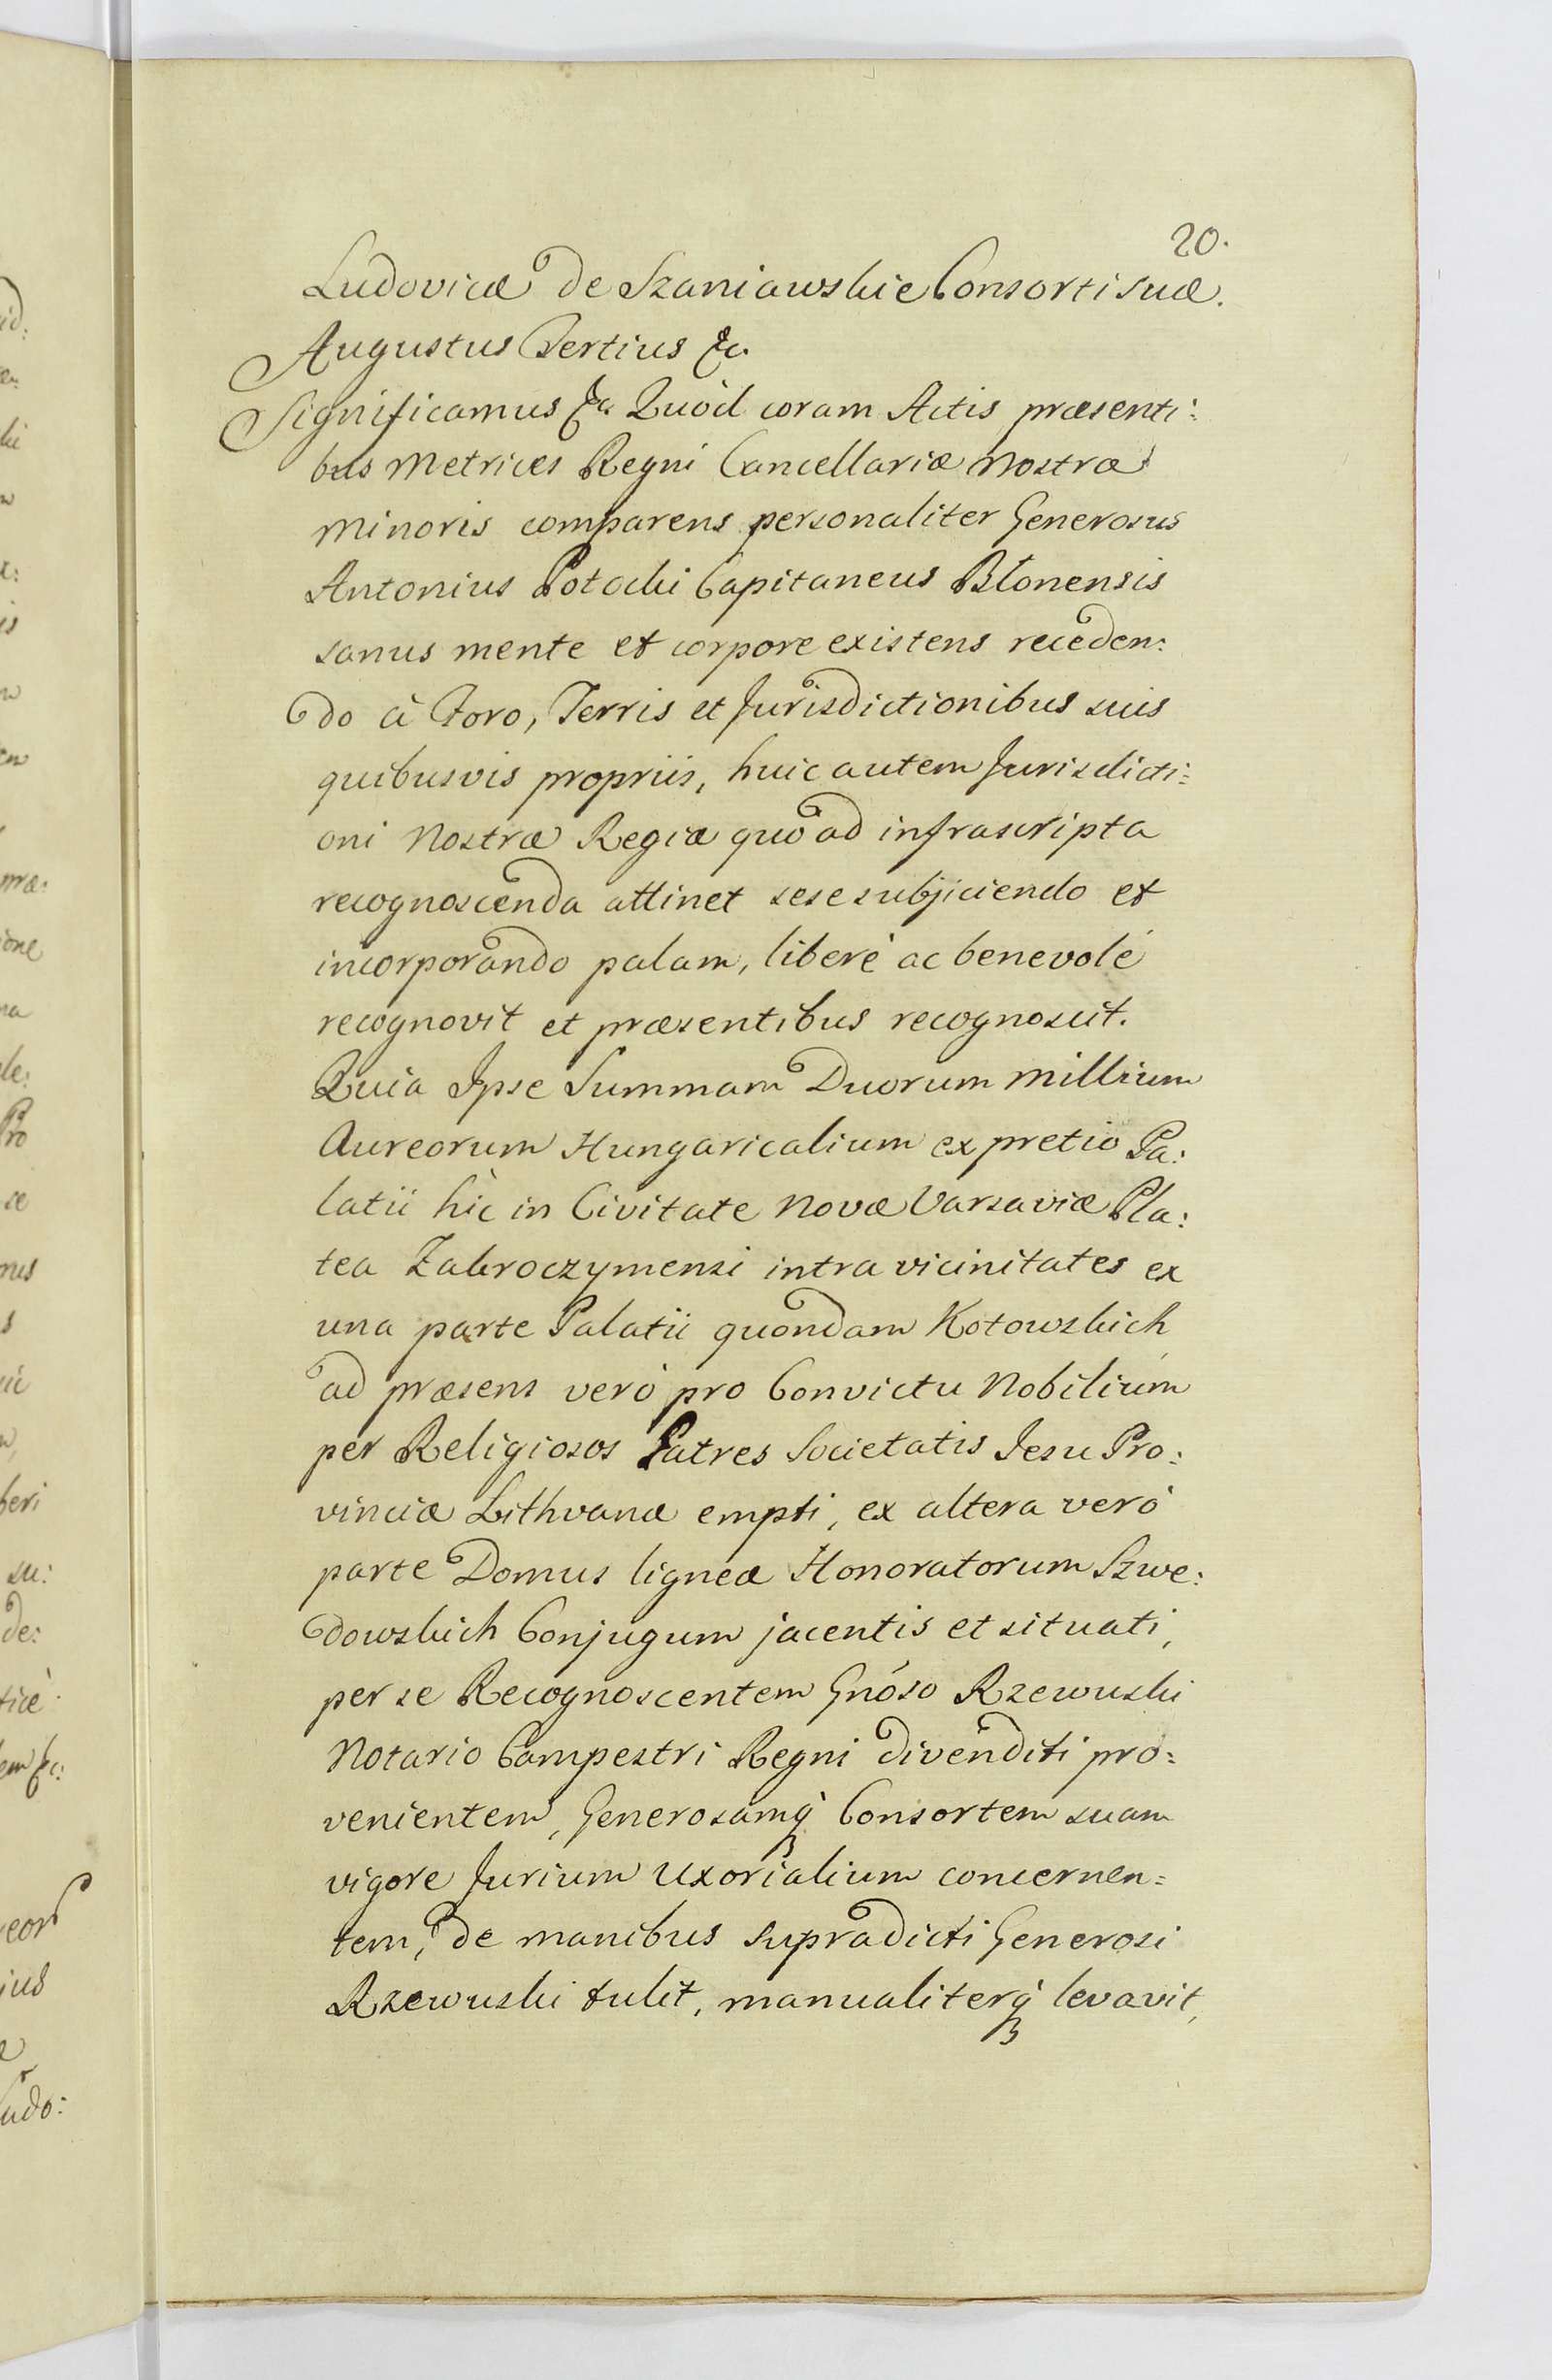 20.
Ludovicæ de Szaniawskie Consorti suæ.
Augustus Tertius &c.
Significamus &c Quòd coram Actis præsenti:
bus Metrices Regni Cancellariæ Nostræ
Minoris comparens personaliter Generosus
Antonius Potocki Capitaneus Błonensis
sanus mente et corpore existens receden:
do à Foro, Terris et Jurisdictionibus suis
quibusvis propriis, huic autem Jurisdicti:
oni Nostræ Regiæ quo ad infrascripta
recognoscenda attinet sese subjiciendo et
incorporando palam, liberè ac benevolé
recognovit et præsentibus recognoscit.
Quia Ipse Summam Duorum Millium
Aureorum Hungaricalium ex pretio Pa:
latii hìc in Civitate Novæ Varsaviæ Pla:
tea Zakroczymensi intra vicinitates ex
una parte Palatii quondam Kotowskich
ad præsens verò pro Convictu Nobilium
per Religiosos Patres Societatis Jesu Pro:
vinciæ Lithvanæ empti, ex altera verò
parte Domus ligneæ Honoratorum Szwe:
dowskich Conjugum jacentis et situati,
per se Recognoscentem Gnóso Rzewuski
Notario Campestri Regni divenditi pro:
venientem, Generosamq́ Consortem suam
vigore Jurium Uxorialium concernen:
tem, de manibus supradicti Generosi
Rzewuski tulit, manualiterq́ levavit,